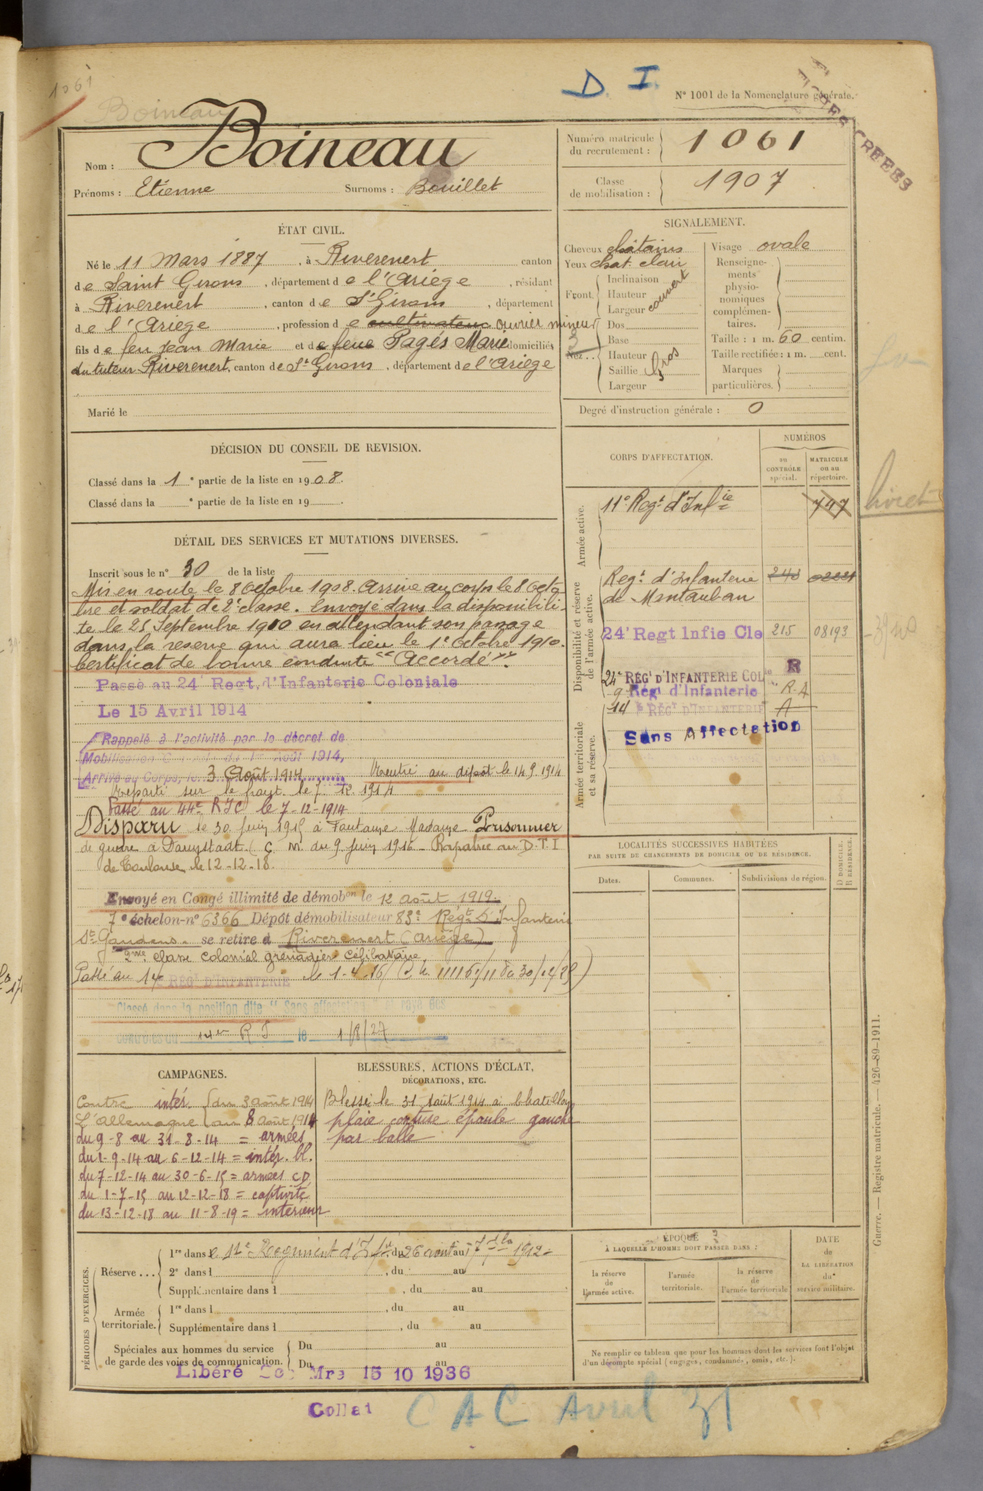 1061
Boineau
D. I.
N° 1001 de la Nomenclature générale.
FICHES CREEES
Nom : Boineau
Prénoms : Etienne Surnoms : Bouillet
Numéro matricule du recrutement : 1061
Classe de mobilisation : 1907
ÉTAT CIVIL.
Né le 11 Mars 1887, à Riverenert canton
de Saint Girons, département de l'Ariège, résidant
à Riverenert, canton de St Girons, département
de l'Ariège, profession de cultivateur ouvrier mineur
fils de feu Jean Marie et de feue Pagés Marie domiciliés
du tuteur Riverenert, canton de St Girons, département de l'Ariège
Marié le
SIGNALEMENT.
Cheveux châtains
Yeux chat. clair
Front. Inclinaison
Hauteur
Largeur couvert
Nez... Dos
Base
Hauteur
Saillie gros
Largeur
Visage ovale
Renseignements physionomiques complémentaires.
Taille : 1 m. 60 centim.
Taille rectifiée : 1 m. cent.
Marques particulières.
Degré d'instruction générale : 0
DÉCISION DU CONSEIL DE REVISION.
Classé dans la 1e partie de la liste en 1908.
Classé dans la e partie de la liste en 19
DÉTAIL DES SERVICES ET MUTATIONS DIVERSES.
Inscrit sous le n° 30 de la liste
Mis en route le 8 Octobre 1908. Arrivé au corps le 8 Octo-
bre et soldat de 2e classe. Envoyé dans la disponibili-
té le 25 Septembre 1910 en attendant son passage
dans la réserve qui aura lieu le 1er Octobre 1910.
Certificat de bonne conduite "Accordé".
Passé au 24e Regt. d'Infanterie Coloniale
Le 15 Avril 1914
Rappelé à l'activité par le décret de
Mobilisation Générale du 1er Août 1914,
Arrivé au Corps, le 3 Août 1914. Rentré au dépôt le 14 9 1914
Reparti sur le front le 7 12 1914
Passé au 44e RIC le 7-12-1914
Disparu le 30 Juin 1915 à Prisonnier
de guerre à Darmstadt. du 9 Juin 1916 - Rapatrié au D.T.I
de Toulouse, le 12-12-18.
Envoyé en Congé illimité de démobon le 12 août 1919
7e échelon n° 6366 Dépôt démobilisateur 83e Régt d'Infanterie
St Gaudens. se retire à Riverenert (Ariège)
2me classe colonial grenadier célibataire
Passé au 14e RÉGt D'INFANTERIE
Classé dans la position dite "Sans affectation" et rayé des
contrôles du 14e R I le 1/8/27
CORPS D'AFFECTATION.
NUMÉROS
au contrôle spécial.
MATRICULE ou au répertoire.
Armée active.
11e Regt d'Infie 747
Disponibilité et réserve de l'armée active.
Regt d'Infanterie
de Montauban
24e Regt Infie Cle 215 08193
24e RÉGt D'INFANTERIE COL. R
9e Régt d'Infanterie R.A
14e RÉGt D'INFANTERIE A
Sans Affectation
Armée territoriale et sa réserve.
livret
LOCALITÉS SUCCESSIVES HABITÉES
PAR SUITE DE CHANGEMENTS DE DOMICILE OU DE RÉSIDENCE.
Dates. Communes. Subdivisions de région. D DOMICILE. R RÉSIDENCE.
CAMPAGNES.
Contre intér. du 3 août 1914
L'Allemagne au 8 août 1914
du 9-8 au 31-8-14 = armées
du 1-9-14 au 6-12-14 = intér. bl.
du 7-12-14 au 30-6-15 = armées CD
du 1-7-15 au 12-12-18 = captivité
du 13-12-18 au 11-8-19 = intérieur
BLESSURES, ACTIONS D'ÉCLAT,
DÉCORATIONS, ETC.
Blessé le 31 août 1914 à Chatillon
plaie contuse épaule gauche
par balle
PÉRIODES D'EXERCICES.
Réserve... 1re dans le 11e Régiment d'Infie du 26 août au 1912
2e dans l , du au
Supplémentaire dans l , du au
Armée territoriale. 1re dans l , du au
Supplémentaire dans l , du au
Spéciales aux hommes du service de garde des voies de communication. Du au
Du au
ÉPOQUE
À LAQUELLE L'HOMME DOIT PASSER DANS :
la réserve de l'armée active.
l'armée territoriale.
la réserve de l'armée territoriale
DATE de LA LIBÉRATION du service militaire.
Ne remplir ce tableau que pour les hommes dont les services font l'objet
d'un décompte spécial (engagés, condamnés, omis, etc.).
Guerre. — Registre matricule. — 426-89-1911.
Libéré Mre 15 10 1936
Collat
CAC Avril 31